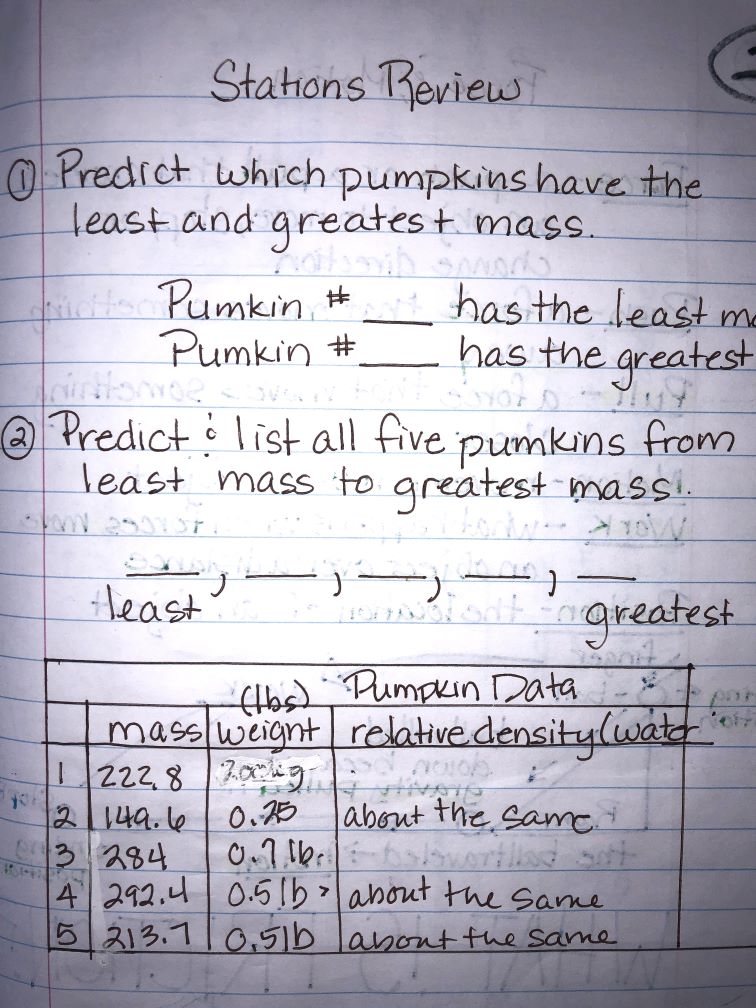 Stations Review
① Predict which pumpkins have the
least and greatest mass.
Pumkin # ___ has the least ma
Pumkin # ___ has the greatest
② Predict & list all five pumkins from
least mass to greatest mass.
___, ___, ___, ___, ___
least greatest
Pumpkin Data
mass (lbs) weight relative density (water
1 222.8
2 149.6 0.25 about the same
3 284 0.7 lb.
4 292.4 0.5 lb > about the same
5 213.7 0.5 lb about the same